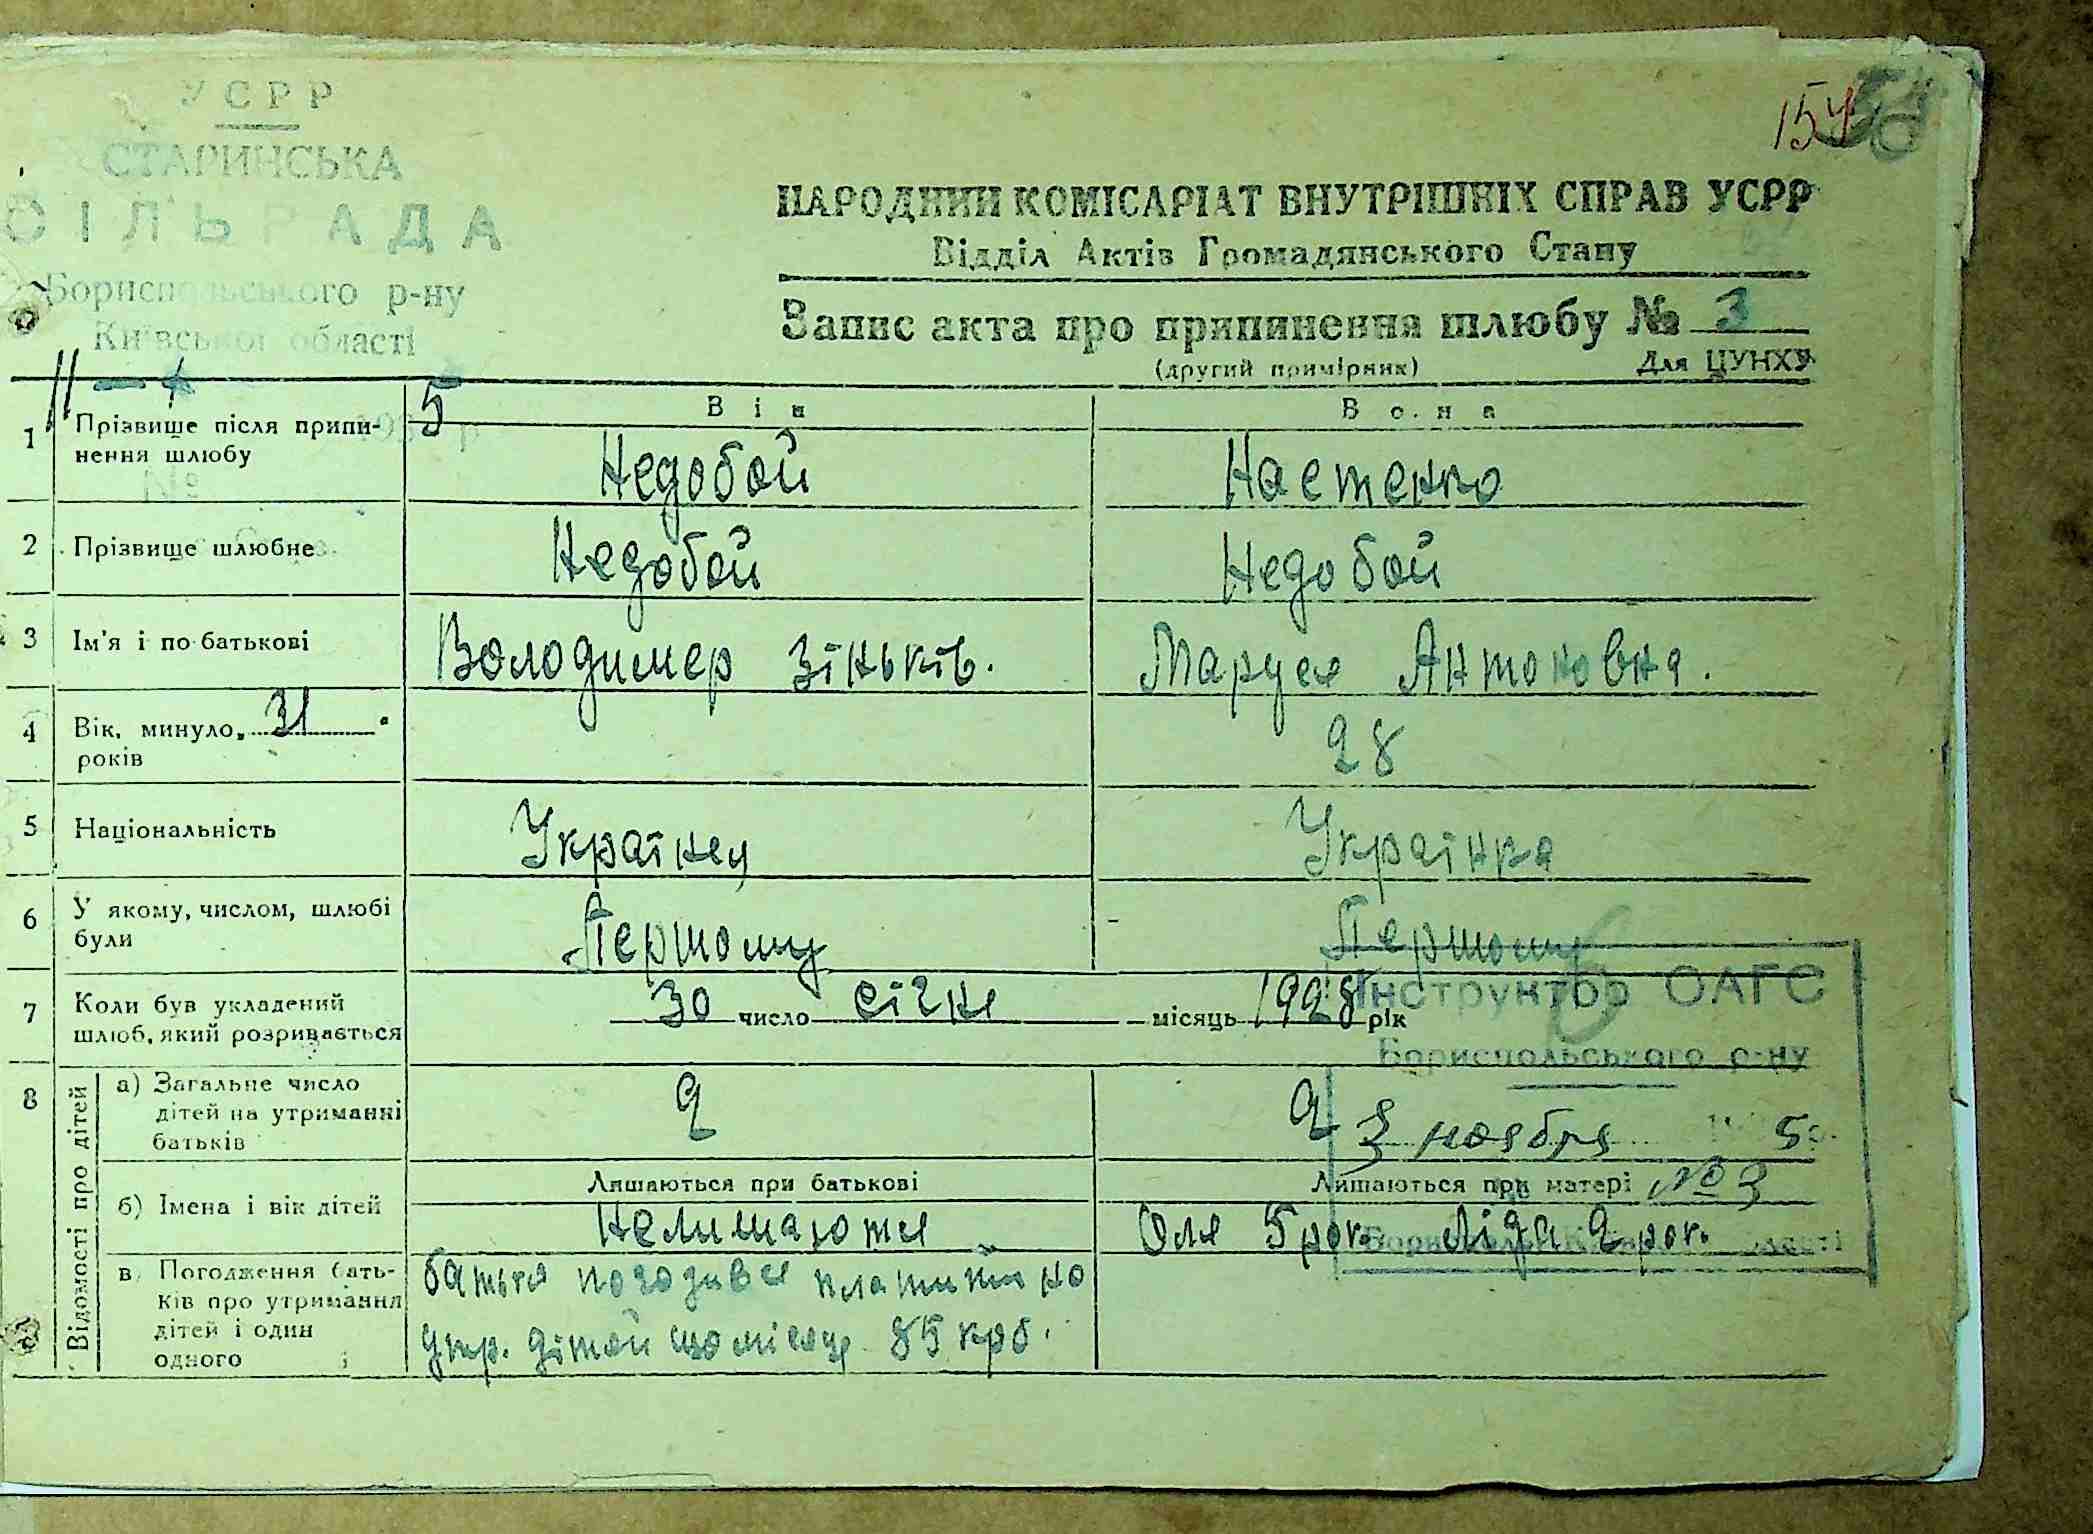 УСРР
СТАРИНСЬКА
СІЛЬРАДА
Бориспольського р-ну
Київської области
№
154
НАРОДНИЙ КОМІСАРІАТ ВНУТРІШНІХ СПРАВ УСРР
Відділ Актів Громадянського Стану
Запис акта про припинення шлюбу № 3
(другий примірник) Для ЦУНХУ
Він Вона
1 Прізвище після припинення шлюбу Недобой Настенко
2 Прізвище шлюбне Недобой Недобой
3 Ім'я і по-батькові Володимер Зіньків. Маруся Антоновна.
4 Вік, минуло 31 років 28
5 Національність Українец Українка
6 У якому, числом, шлюбі були Першому Першому
7 Коли був укладений шлюб, який розривається 30 число січня місяць 1928 рік
Інструктор ОАГС
Бориспольського р-ну
3 ноября 5
№ 3
8 Відомості про дітей
а) Загальне число дітей на утриманні батьків 2 2
Лишаються при батькові Лишаються при матері
б) Імена і вік дітей Нелишаютя Оля 5 рок. Ліда 2 рок.
в) Погодження батьків про утримання дітей і один одного батько погодився платити на
утр. дітей щомісяця 85 крб.